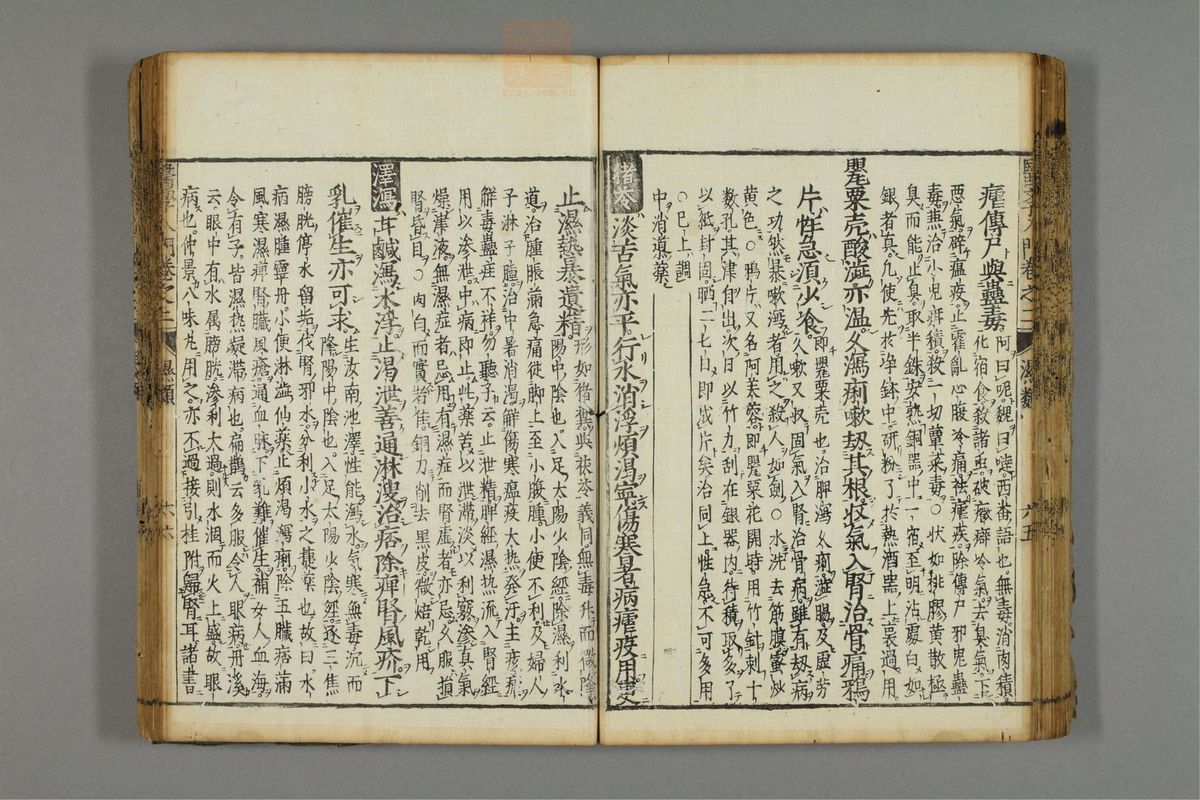 瘧傳尸與蠱毒 阿曰呢魏曰噠西畨語也無毒消肉積
化宿食殺諸虫破癥癖冷氣去臭氣下
惡氣辟瘟疫止霍亂心腹冷痛祛瘧疾除傳尸邪鬼蠱
毒無治小児疳積殺一切蕈菜毒○状如桃膠黄散極
臭而能止臭取半銖安熟銅噐中一宿至明沾處白如
銀者真凢使先於浄鉢中研粉了於熱酒噐上裛過用
罌粟壳酸澁亦温久瀉痢嗽刼其根収氣入腎治骨痛鴉
片性急湏少食 即罌粟壳也治脾瀉久痢澁腸及虚劳
久嗽又収固氣入腎治骨病雖有刼病
之功然暴嗽瀉者用之殺人如劍○水洗去筋膜蜜炒
黄色○鴉片又名阿芙蓉即罌粟花開時用竹針刺十
数孔其津自出次日以竹刀刮在銀器内待積取多了
以紙封固晒二七日即成片矣治同上性急不可多用
○巳上調
中消導薬
猪苓 淡苦氣亦平行水消浮煩渇寧傷寒暑病瘧疫用更
止濕熱暴遺精 形如猪糞與茯苓義同無毒升而微降
陽中隂也入足太陽少隂經除濕利水
道治腫脹滿急痛徒脚上至小腹腫小便不利及婦人
子淋子腫治中暑消渇解傷寒瘟疫大热発汗主痎瘧
解毒蠱疰不祥勿聽子云止泄精脾經濕热流入腎經
用以渗泄中病即止此薬苦以泄滞淡以利竅渗真氣
燥津液無濕症者忌用有濕症而腎虚者亦忌久服損
腎昏目○肉白而實者佳銅刀削去黒皮微焙乾用
澤瀉 甘鹹瀉水浮止渇泄善通淋溲治痞除痺腎風疥下
乳催生亦可求 生汝南池澤性能瀉水氣寒無毒沉而
隂陽中隂也入足太陽少隂經逐三焦
膀胱停水留垢伐腎邪水分利小水之捷薬也故曰水
病濕腫靈丹小便淋澁仙薬止煩渇瀉痢除五臓痞滿
風寒濕痺腎臓風瘡通血脉下乳難催生補女人血海
令有子皆濕热凝滞病也扁鵲云多服令人眼病丹溪
云眼中有水属膀胱渗利太過則水涸而火上盛故眼
病也仲景八味丸用之亦不過接引桂附歸腎耳諸書
醫學入門卷之二
濕類
六五
六六